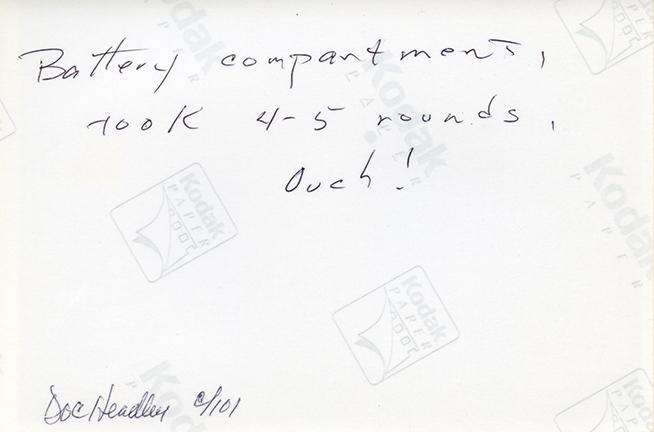 Battery compartment,
took 4-5 rounds,
Ouch!
Kodak
PAPER
Kodak
PAPER
Kodak
PAPER
Kodak
PAPER
Kodak
PAPER
Doc Headley C/101